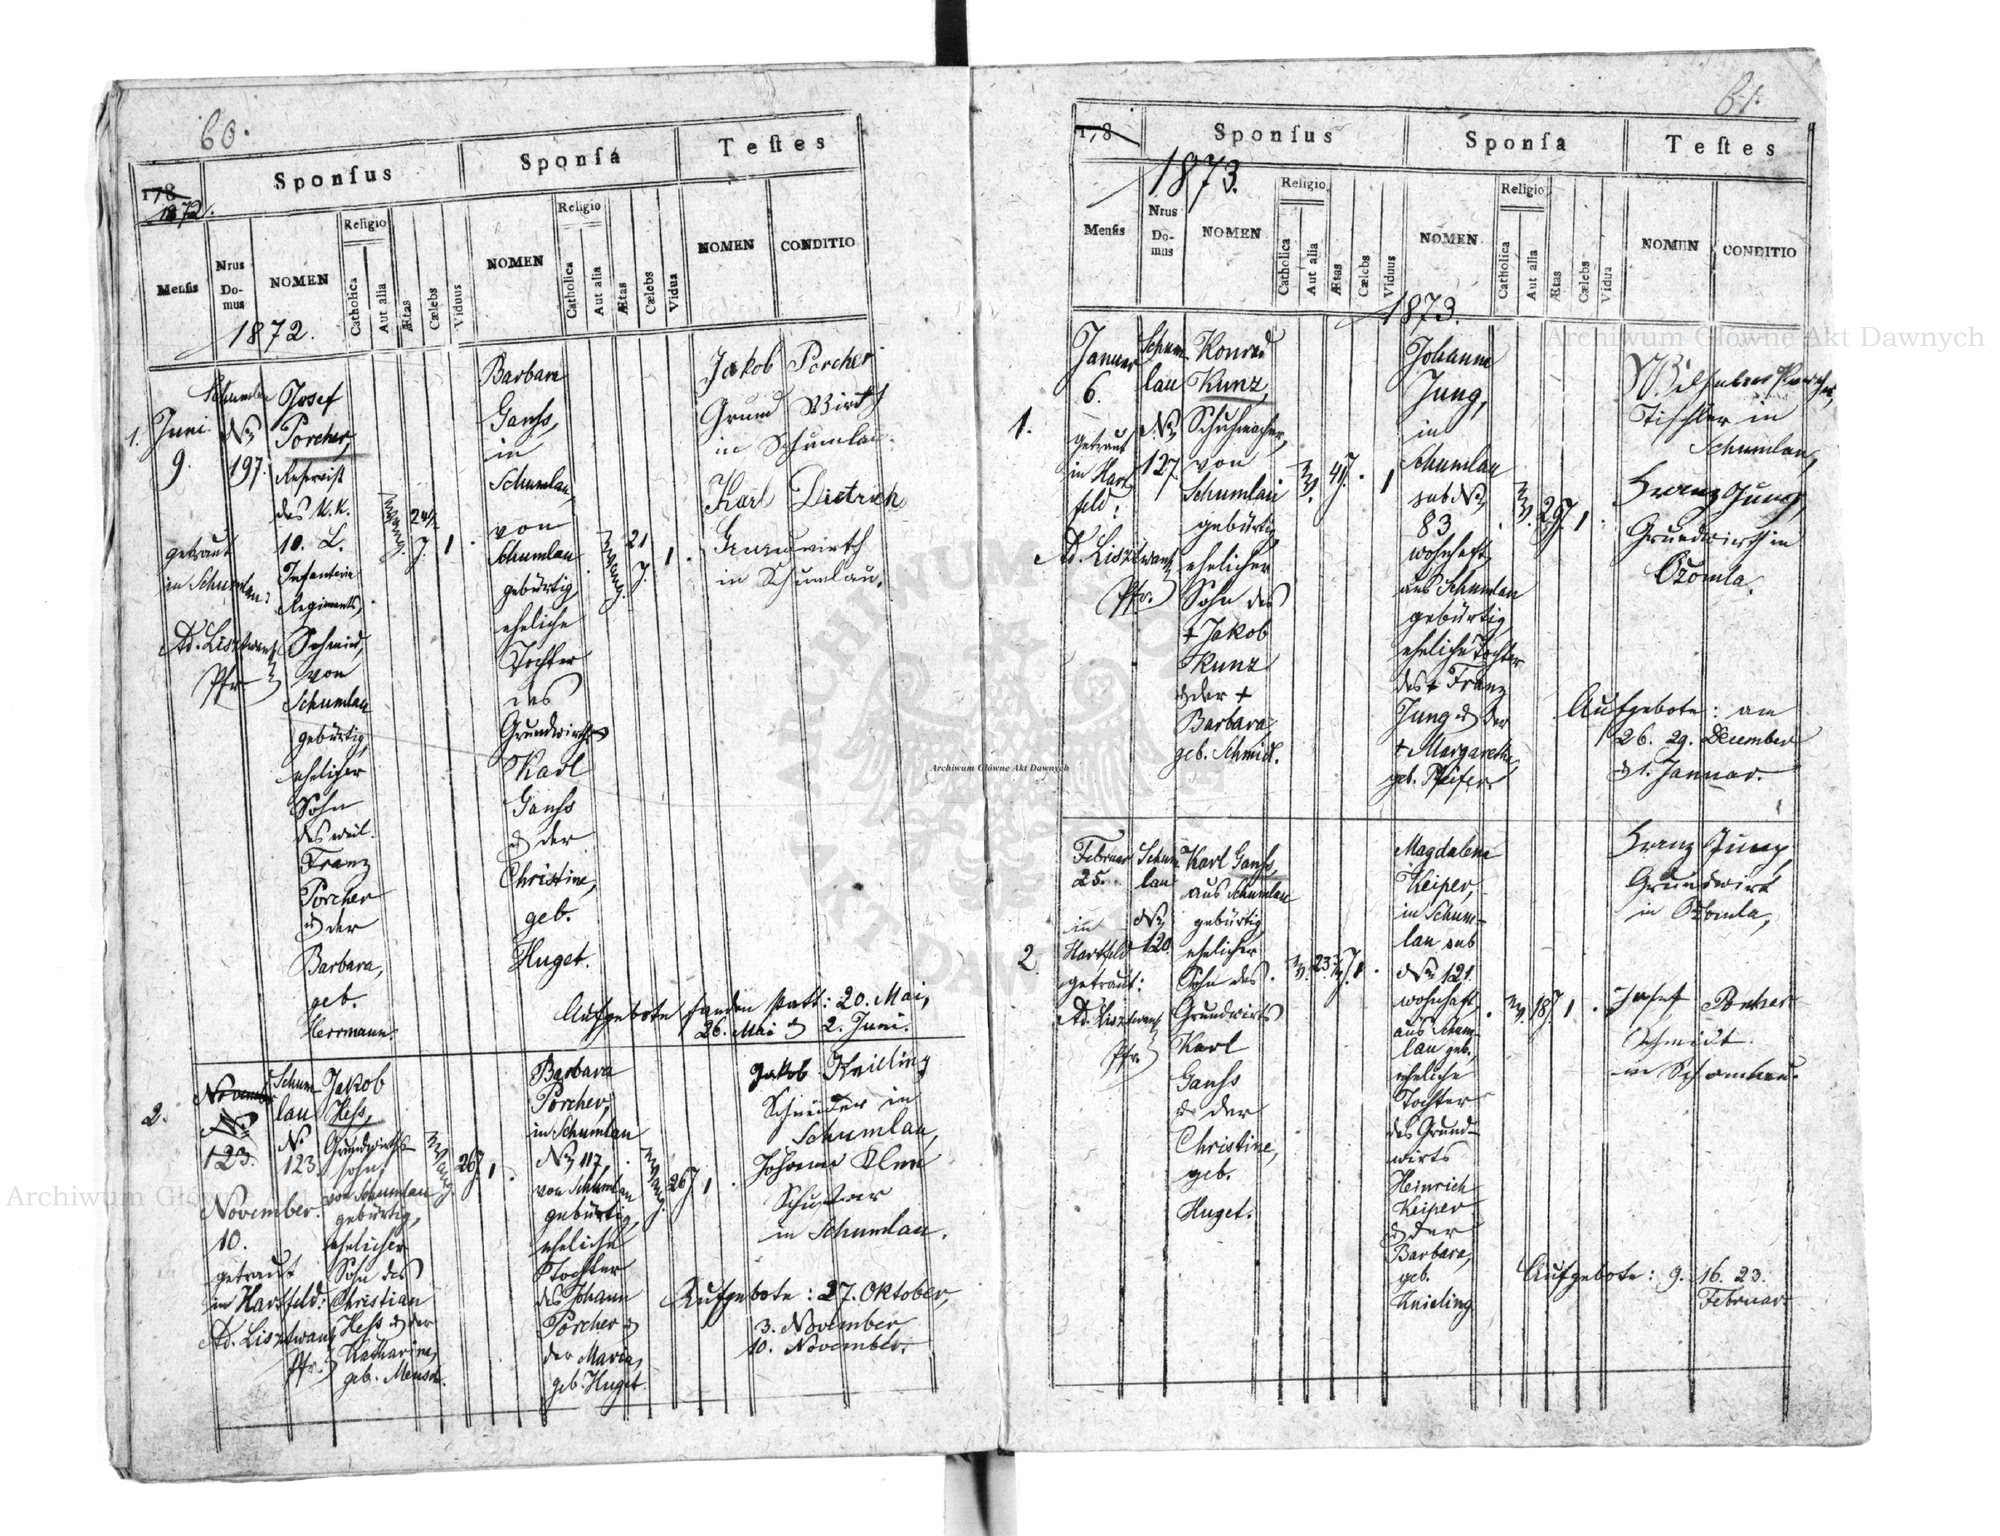 60.
178
1872.
Sponſus
Sponſa
Teſtes
Menſis
Nrus Domus
NOMEN
Religio
Catholica
Aut alia
Ætas
Cælebs
Viduus
NOMEN
Religio
Catholica
Aut alia
Ætas
Cælebs
Vidua
NOMEN
CONDITIO
1872.
1.
Juni
9.
getraut
in Schumlau:
Ad. Lisztwan
Pfr.
Schumlau
No
197.
Josef
Porcher,
Reservist
des K. K.
10. L.
Infanterie
Regiments,
Schmied,
von
Schumlau
gebürtig,
ehelicher
Sohn
des weil.
Franz
Porcher
& der
Barbara,
geb.
Herrmann.
evang.
J.
1
Barbara
Ganß,
in
Schumlau,
von
Schumlau
gebürtig,
eheliche
Tochter
des
Grundwirths
Karl
Ganß
& der
Christine,
geb.
Huget.
evang.
21
J.
1
Jakob Porcher
Grund Wirth
in Schumlau.
Karl Dietrich
Grundwirth
in Schumlau.
Aufgebote fanden statt: 20. Mai,
26. Mai & 2. Juni.
2.
November
No
123.
November
10.
getraut
in Hartfeld:
Ad. Lisztwan
Pfr.
Schum
lau
No
123
Jakob
Heß,
Grundwirths-
sohn,
von Schumlau
gebürtig,
ehelicher
Sohn des
Christian
Heß & der
Katharina,
geb. Mensch.
evang.
26 J.
1
Barbara
Porcher,
in Schumlau
No 117,
von Schumlau
gebürtig,
eheliche
Tochter
des Johann
Porcher &
der Maria,
geb. Huget.
evang.
26 J.
1
Jakob Knieling
Schneider in
Schumlau,
Johann
Schuster
in Schumlau.
Aufgebote: 27. Oktober,
3. November
10. November.
61.
178
Sponſus
Sponſa
Teſtes
1873.
Menſis
Nrus Domus
NOMEN
Religio
Catholica
Aut alia
Ætas
Cælebs
Viduus
NOMEN
Religio
Catholica
Aut alia
Ætas
Cælebs
Vidua
NOMEN
CONDITIO
1873.
1.
Januar
6.
getraut
in Hart
feld:
Ad. Lisztwan
Pfr.
Schum
lau
No
127.
Konrad
Kunz,
Schuhmacher,
von
Schumlau
gebürtig,
ehelicher
Sohn des
+ Jakob
Kunz
& der +
Barbara,
geb. Schmidt.
ev.
41 J.
1
Johanna
Jung,
in
Schumlau
sub No
83
wohnhaft,
aus Schumlau
gebürtig,
eheliche Tochter
des + Franz
Jung & der
+ Margarethe,
geb. Pfeifer.
ev.
29 J.
1
Wilhelm Porcher,
Tischler in
Schumlau,
Franz Jung,
Grundwirth in
Ozomla.
Aufgebote: am
26. 29. December
& 1. Januar.
2.
Februar
25.
in
Hartfeld
getraut:
Ad. Lisztwan
Pfr.
Schum
lau
No
120.
Karl Ganß,
aus Schumlau
gebürtig,
ehelicher
Sohn des
Grundwirts
Karl
Ganß
& der
Christine,
geb.
Huget.
ev.
1
Magdalena
Keiper,
in Schum-
lau sub
No 121
wohnhaft,
aus Schum-
lau geb.,
eheliche
Tochter
des Grund-
wirts
Heinrich
Keiper
& der
Barbara,
geb.
Knieling.
ev.
18 J.
1
Franz Jung,
Grundwirt
in Ozomla,
Josef Porcher
Schmidt
in Schomlau.
Aufgebote: 9. 16. 23.
Februar.
Archiwum Główne Akt Dawnych
Archiwum Główne Akt Dawnych
Archiwum Główne Akt Dawnych
ARCHIWUM GŁÓWNE AKT DAWNYCH